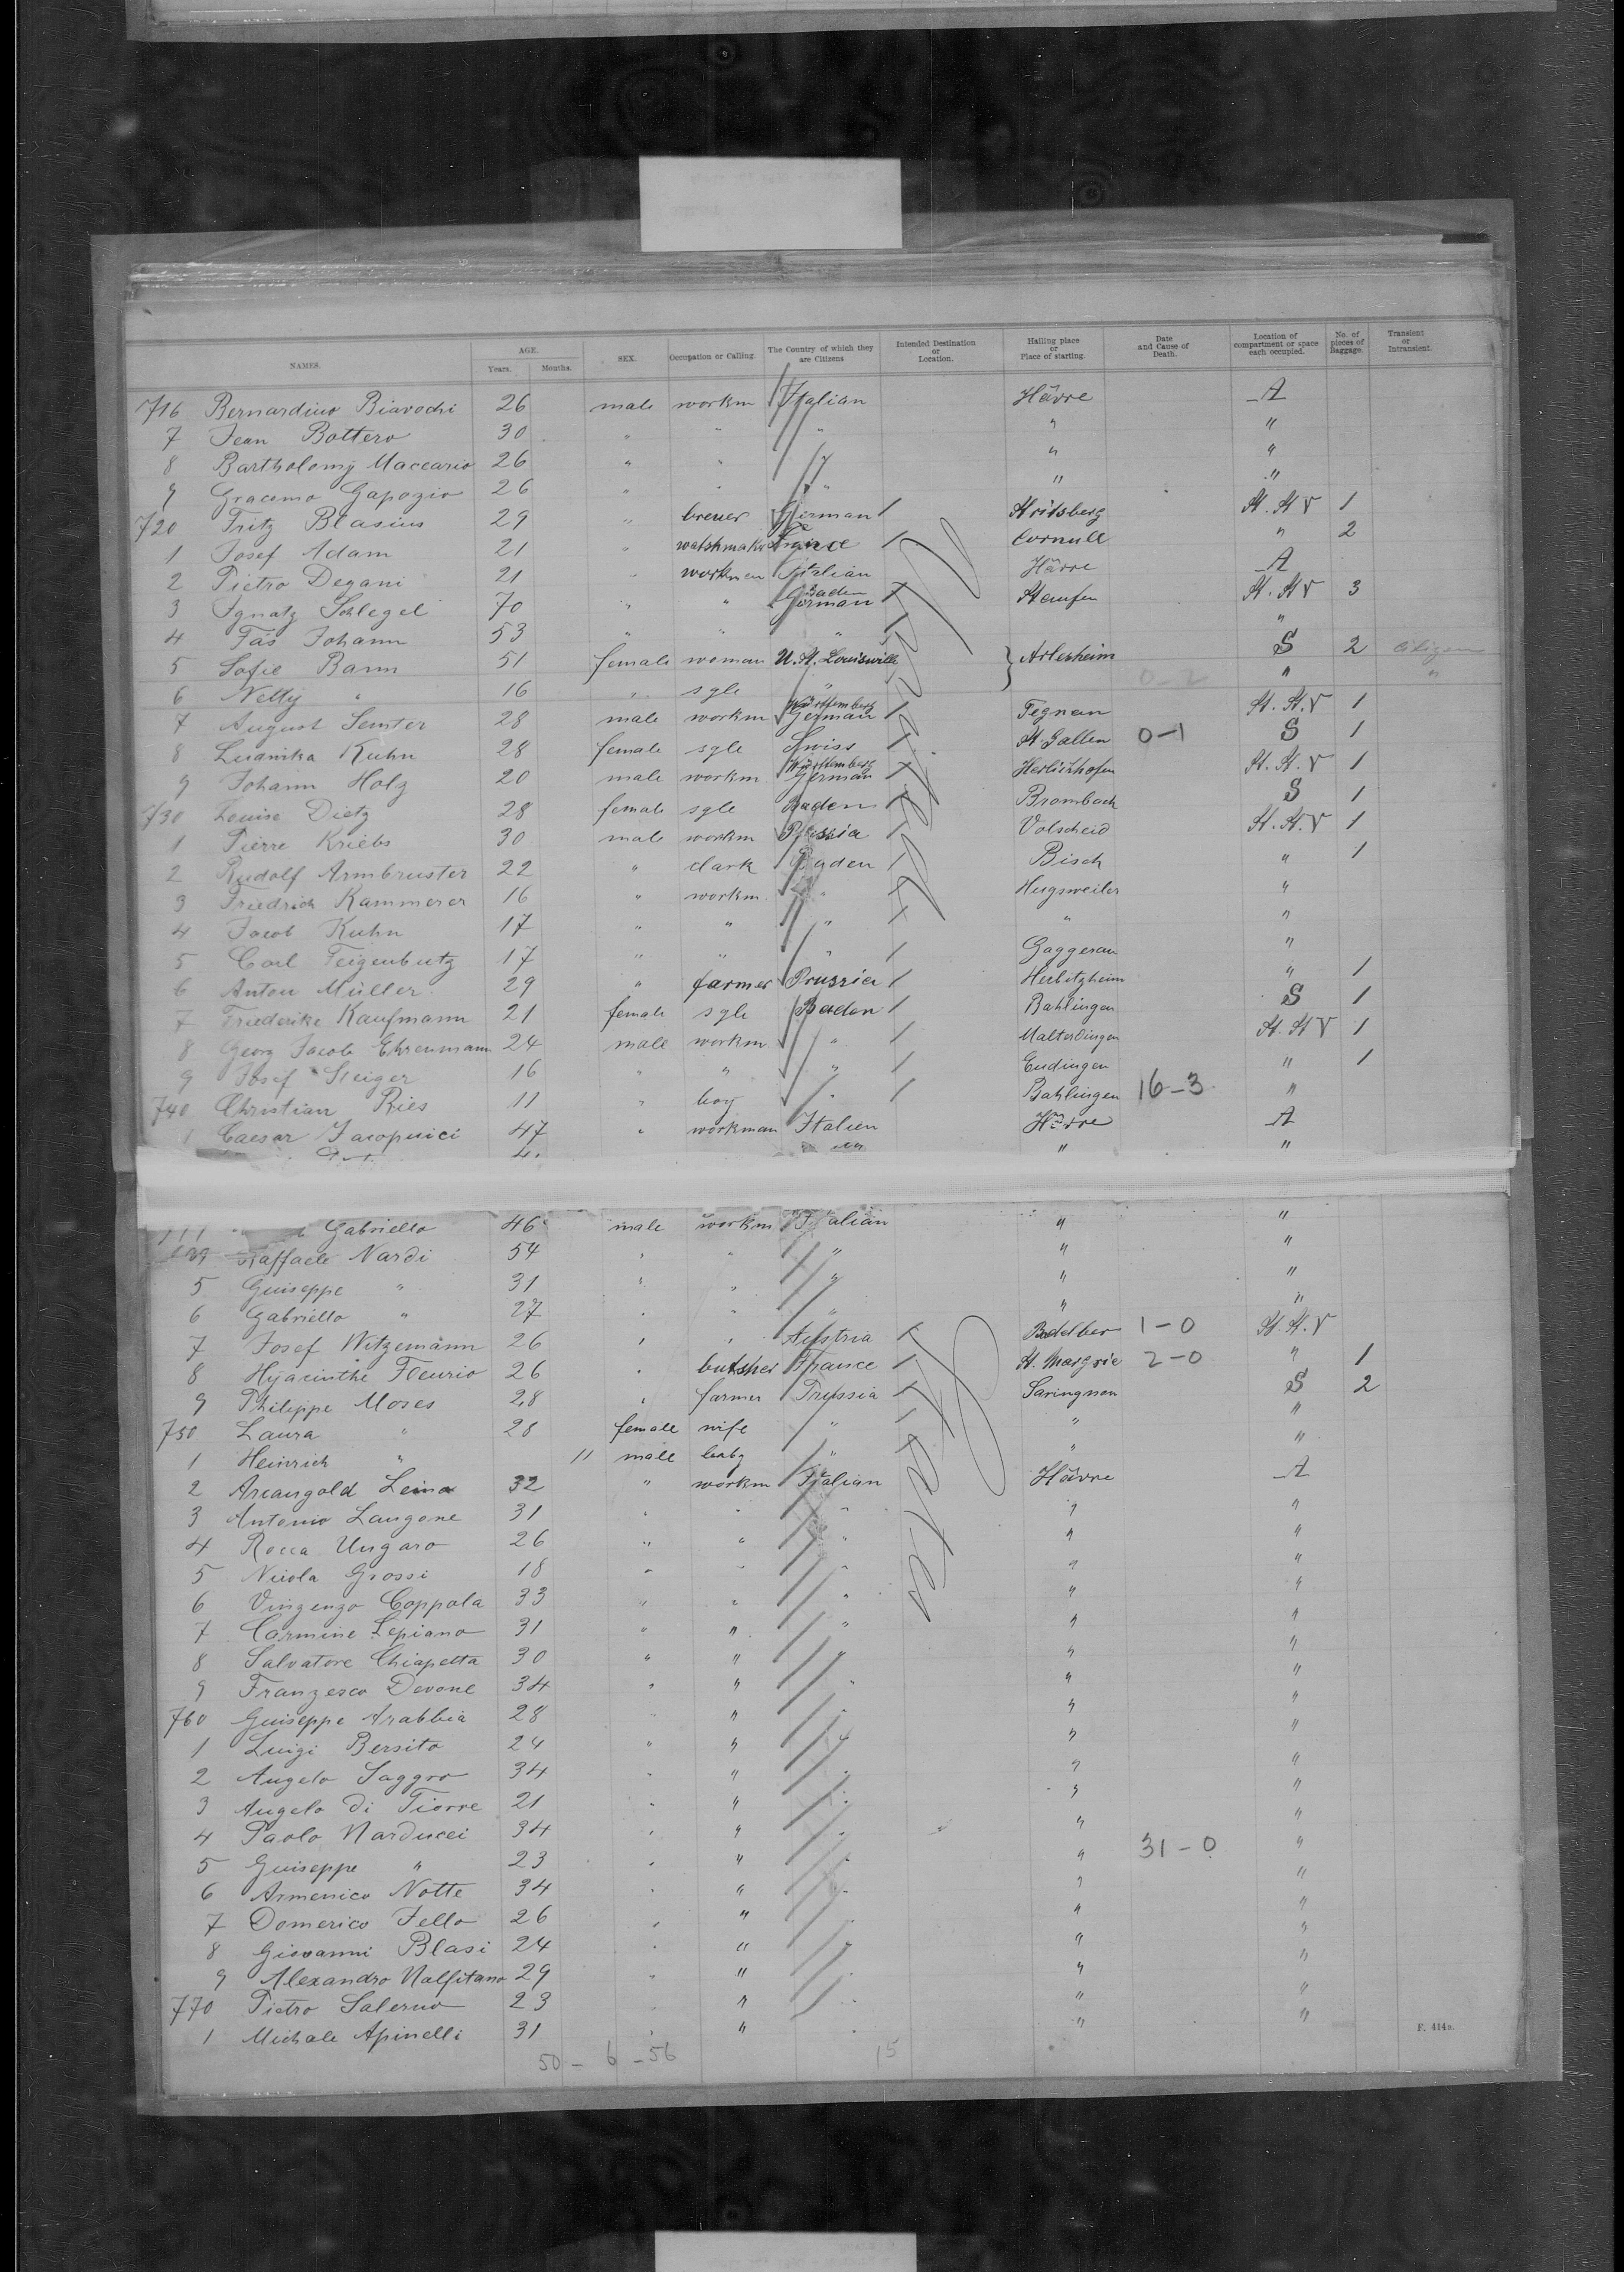 NAMES. AGE. Years. Months. SEX. Occupation or Calling. The Country of which they are Citizens Intended Destination or Location. Hailing place or Place of starting. Date and Cause of Death. Location of compartment or space each occupied. No. of pieces of Baggage. Transient or Intransient.
716 Bernardino Biavochi 26 male workm Italian Hâvre A
7 Jean Bottero 30 " " " " "
8 Bartholomy Maccario 26 " " " " "
9 Gracomo Gapozio 26 " " " " "
720 Fritz Blasius 29 " breuer German Stritsberg St. St V 1
1 Josef Adam 21 " watshmaker France Cornull " 2
2 Pietro Degani 21 " workmen Italian Hâvre A
3 Ignatz Schlegel 70 " " Baden German Staufen St. St V 3
4 Fás Johann 53 " " " "
5 Sofie Bann 51 female woman U. St. Louisville } Arlesheim S 2 citizen
6 Netty " 16 " sgle " 0-2 " "
7 August Semter 28 male workm Württemberg German Tegnau St. St. V 1
8 Ludwika Kuhn 28 female sgle Swiss St Gallen 0-1 S 1
9 Johann Holz 20 male workm Württemberg German Herlishhofen St. St. V 1
730 Louise Dietz 28 female sgle Baden Brombach S 1
1 Pierre Kriebs 30 male workm Prussia Volscheid St. St. V 1
2 Rudolf Armbruster 22 " clark Baden Bisch " 1
3 Friedrich Kammerer 16 " workm " Hugsweiler "
4 Jacob Kuhn 17 " " " " "
5 Carl Feigenbutz 17 " " " Gaggenau "
6 Anton Müller 29 " farmer Prussia Herbitzheim " 1
7 Friederike Kaufmann 21 female sgle Baden Bahlingen S 1
8 Georg Jacob Ehrenmann 24 male workm " Malterdingen St. St V 1
9 Josef Steiger 16 " " " Endingen " 1
740 Christian Ries 11 " boy " Bahlingen 16-3 "
1 Caesar Jacopucci 47 " workman Italien Hâvre A
" "
Gabriello 46 male workm Italian " "
Raffaele Nardi 54 " " " " "
5 Guiseppe " 31 " " " " "
6 Gabriello " 27 " " " " "
7 Josef Witzemann 26 " " Austria 1-0 St. St. V
8 Hyacinthe Fleurio 26 " butsher France St. Margrie 2-0 " 1
9 Philippe Moses 28 " farmer Prussia Saringnon S 2
750 Laura " 28 female wife " " "
1 Heinrich " 11 male baby " " "
2 Arcangold Leina 32 " workm Italian Hâvre A
3 Antonio Langone 31 " " " " "
4 Rocca Ungaro 26 " " " " "
5 Nicola Grossi 18 " " " " "
6 Vingenzo Coppola 33 " " " " "
7 Carmine Lepiano 31 " " " " "
8 Salvatore Chiapetta 30 " " " " "
9 Franzesco Devone 34 " " " " "
760 Guiseppe Arabbia 28 " " " " "
1 Luigi Bersito 24 " " " " "
2 Angelo Saggro 34 " " " " "
3 Angelo di Fiorre 21 " " " " "
4 Paolo Narducci 34 " " " " "
5 Guiseppe " 23 " " " " 31-0 "
6 Armenico Notte 34 " " " " "
7 Domerico Fello 26 " " " " "
8 Giovanni Blasi 24 " " " " "
9 Alexandro Nalfitano 29 " " " " "
770 Pietro Salerno 23 " " " " "
1 Michale Apinelli 31 " " " " "
F. 414a.
50 - 6 - 56 15